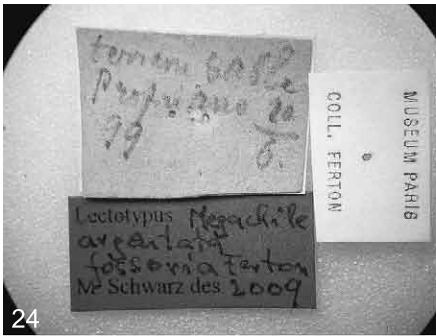 terrain sable
Propriano 20
99 6.
MUSEUM PARIS
COLL. FERTON
Lectotypus Megachile
argentata
fossoria Ferton
M. Schwarz des. 2009
24